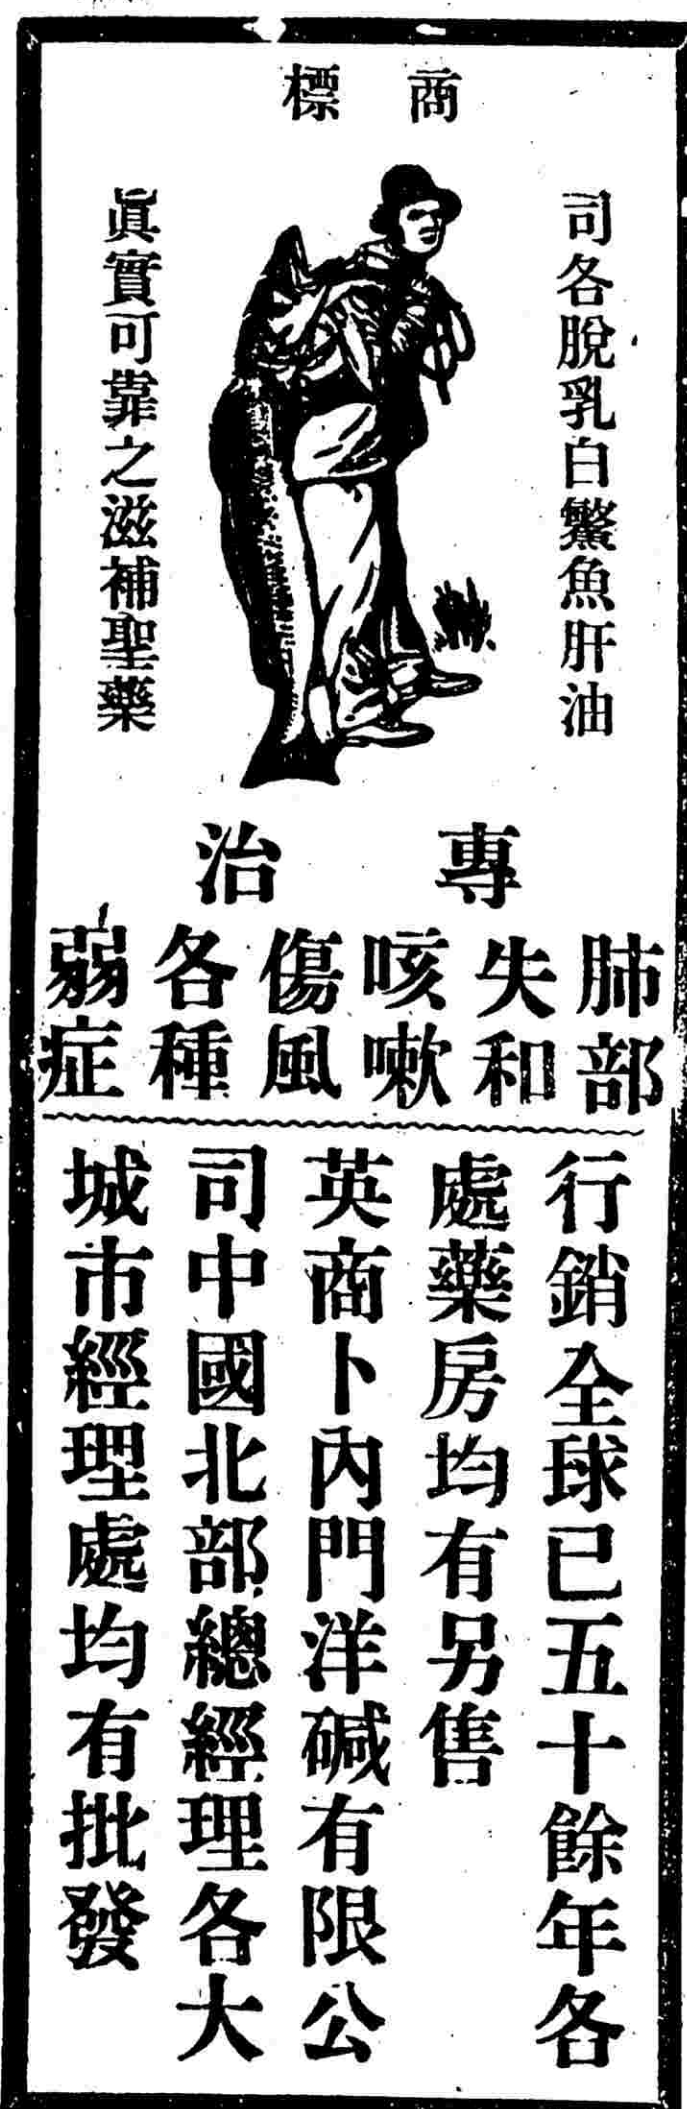 商標
司各脫乳白鰵魚肝油
眞實可靠之滋補聖藥
專治
肺部
失和
咳嗽
傷風
各種
弱症
行銷全球已五十餘年各
處藥房均有另售
英商卜內門洋碱有限公
司中國北部總經理各大
城市經理處均有批發